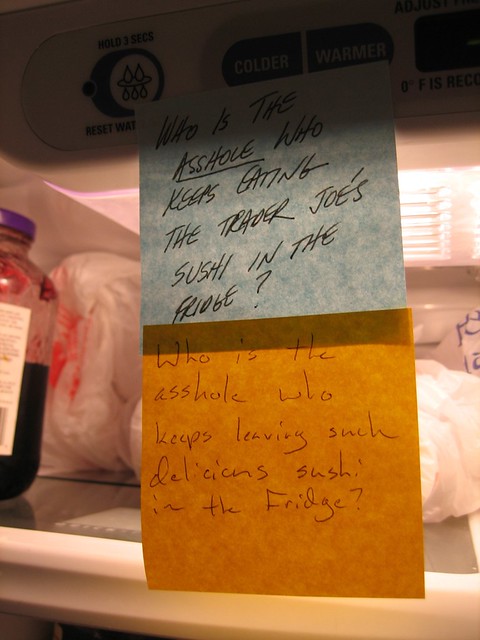 HOLD 3 SECS
RESET WAT
COLDER
WARMER
ADJUST
0° F IS RECO
WHO IS THE
ASSHOLE WHO
KEEPS EATING
THE TRADER JOE'S
SUSHI IN THE
FRIDGE?
Who is the
asshole who
keeps leaving such
delicious sushi
in the Fridge?